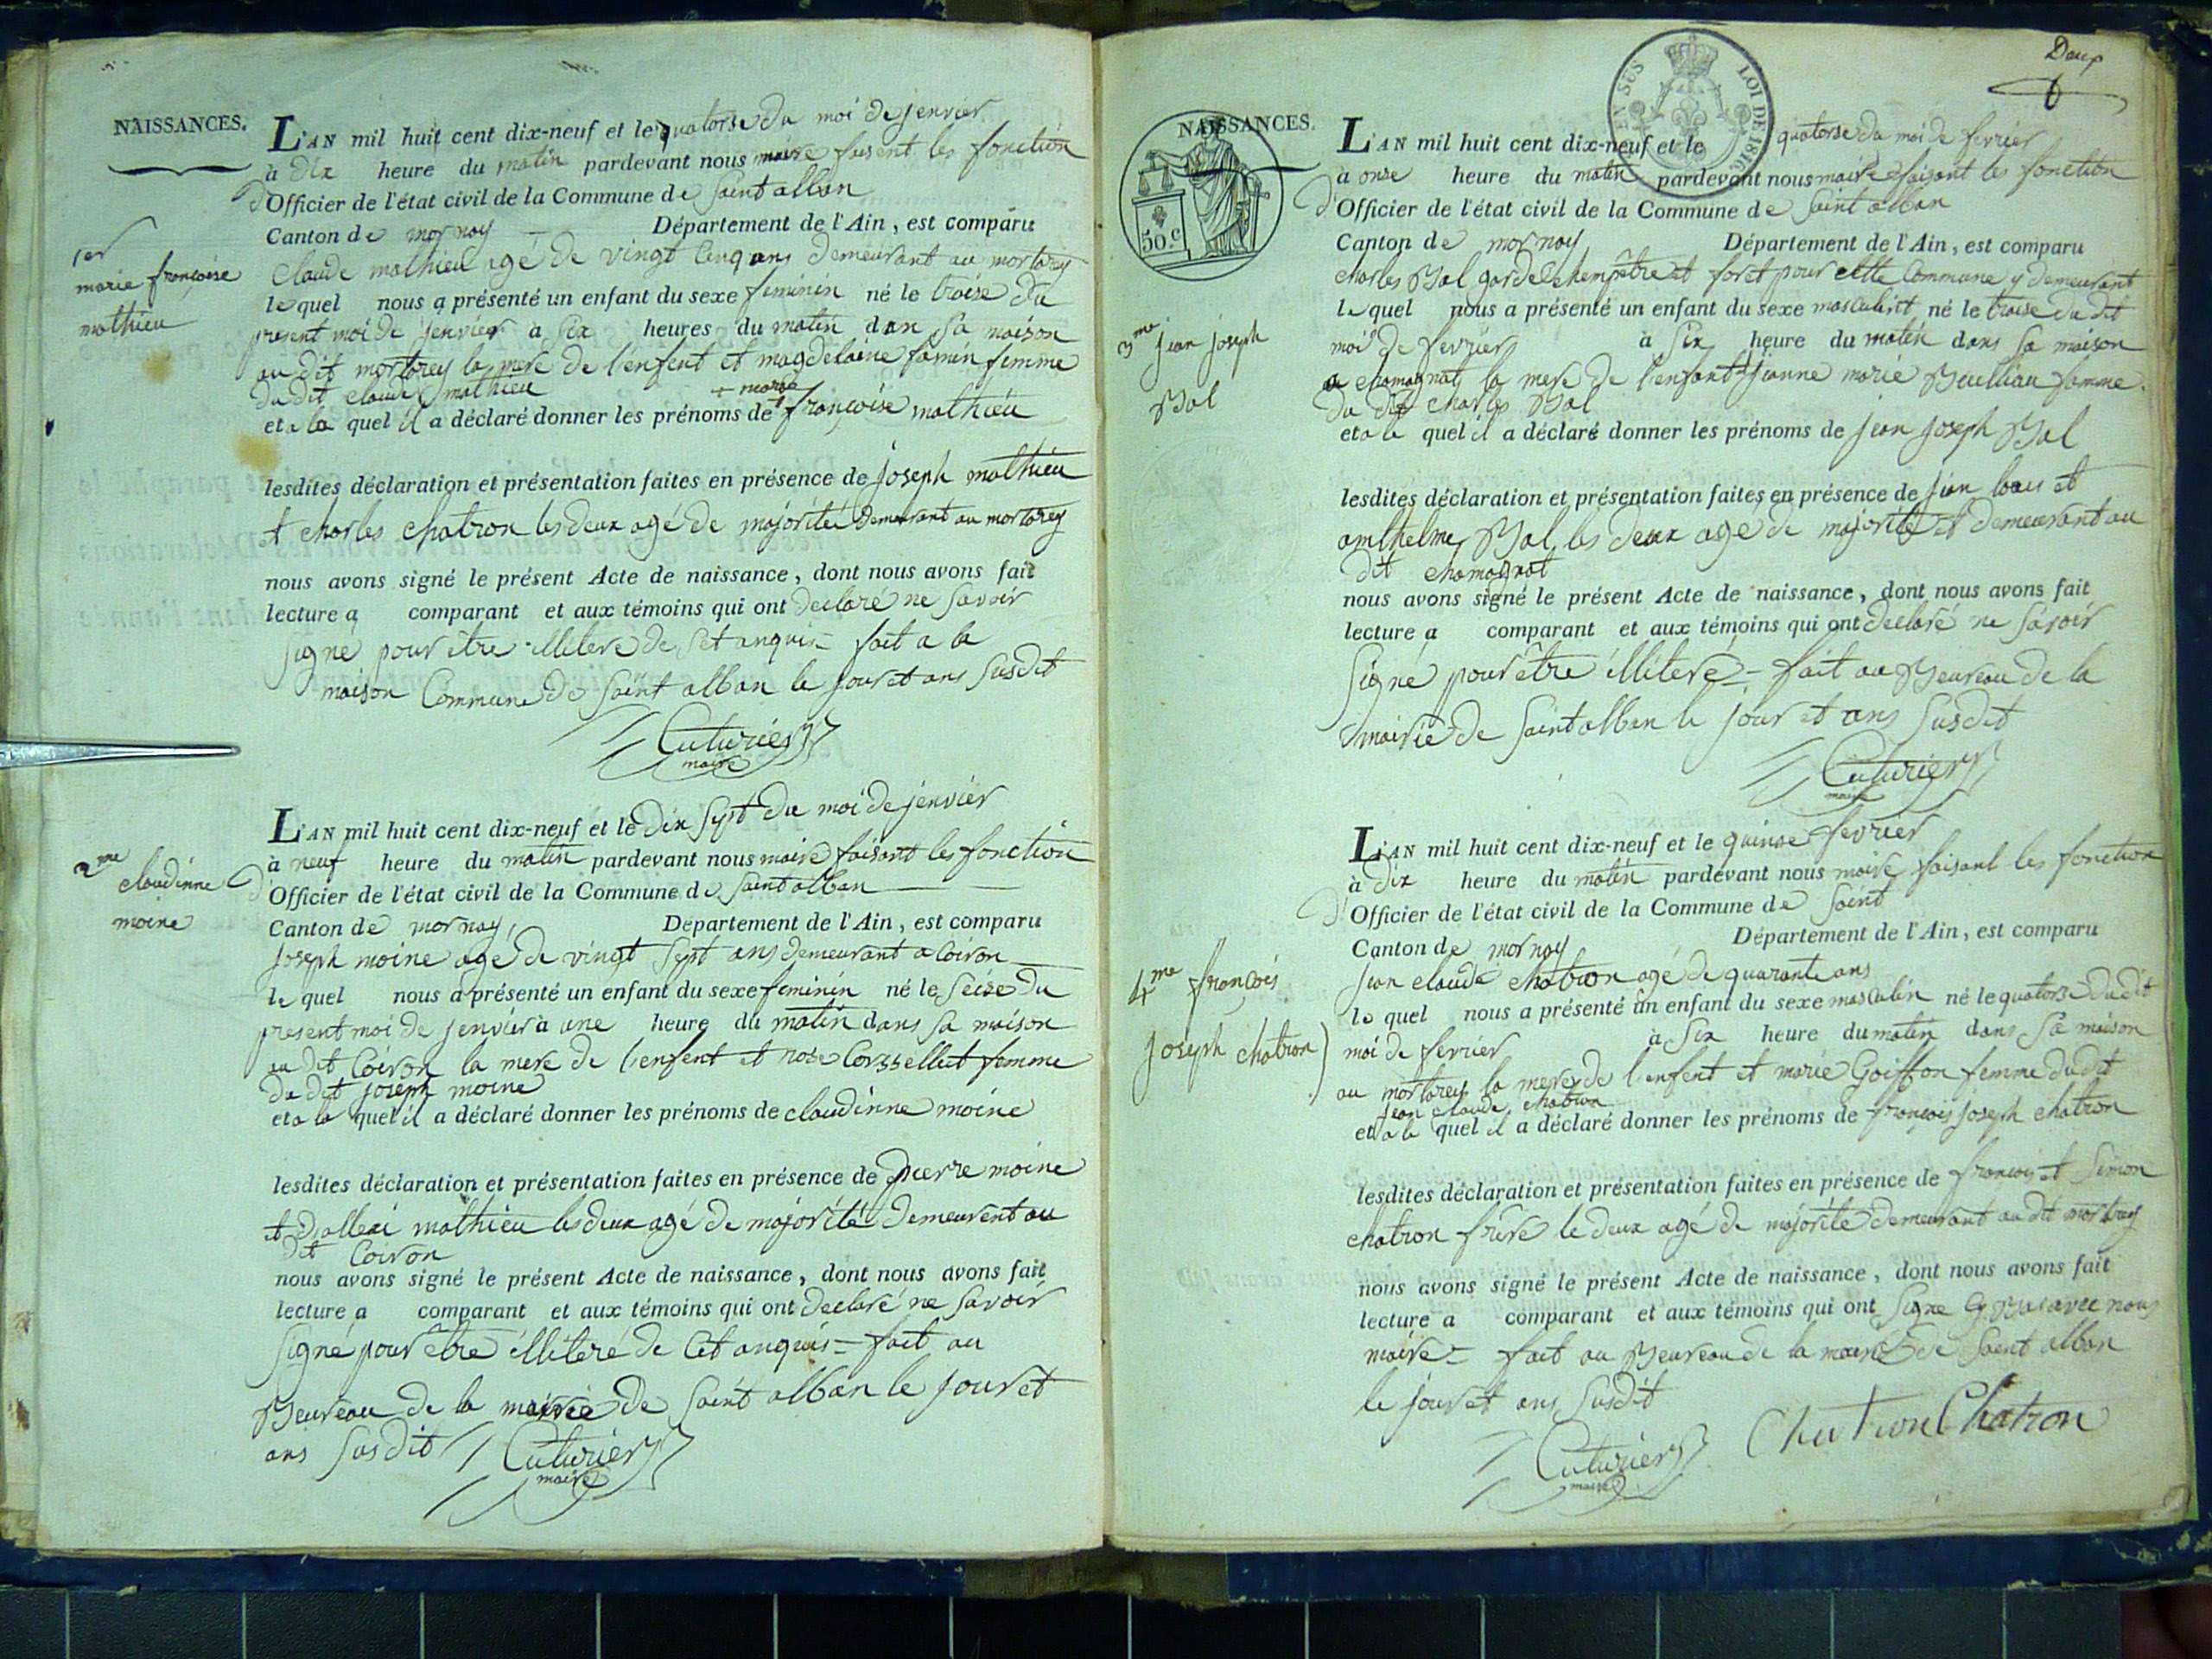 NAISSANCES.
L'AN mil huit cent dix-neuf et le quatorse du moi de jenvier
à dix heure du matin pardevant nous maire faisent les fonction
d'Officier de l'état civil de la Commune de saint alban
Canton de mornay Département de l'Ain, est comparu
1er
marie françoise
mathieu
Claude mathieu agé de vingt cinq ans demeurant au mortarey
le quel nous a présenté un enfant du sexe feminin né le treise du
present moi de jenvier à six heures du matin dan sa maison
au dit mortarey la mere de l'enfent et magdelaine famin femme
du dit claude mathieu
+ marie
et a la quel il a déclaré donner les prénoms de + françoise mathieu
lesdites déclaration et présentation faites en présence de joseph mathieu
et charles chatron les deux agé de majorité demeurant au mortarey
nous avons signé le présent Acte de naissance, dont nous avons fait
lecture a comparant et aux témoins qui ont declaré ne savoir
signé pour etre illiteré de cet anquis = fait a la
maison Commune de saint alban le jour et ans susdit
Cuturier
maire
L'AN mil huit cent dix-neuf et le dix sept du moi de jenvier
à neuf heure du matin pardevant nous maire faisant les fonction
2me claudinne
moine
d'Officier de l'état civil de la Commune de saint alban
Canton de mornay, Département de l'Ain, est comparu
joseph moine agé de vingt sept ans demeurant a Coiron
le quel nous a présenté un enfant du sexe feminin né le seise du
present moi de jenvier à une heure du matin dans sa maison
au dit Coiron la mere de l'enfent et rose femme
du dit joseph moine
et a la quel il a déclaré donner les prénoms de claudinne moine
lesdites déclaration et présentation faites en présence de pierre moine
et d'allexi mathieu les deux agé de majorité demeurent au
dit Coiron
nous avons signé le présent Acte de naissance, dont nous avons fait
lecture a comparant et aux témoins qui ont declaré ne savoir
signé pour être illiteré de cet anquis = fait au
Beureau de la mairie de saint alban le jour et
ans susdit Cuturier
maire
Deux
EN SUS LOI DE 1816
50.c
NAISSANCES.
L'AN mil huit cent dix-neuf et le quatorse du moi de fevrier
à onse heure du matin pardevant nous maire faisant les fonction
d'Officier de l'état civil de la Commune de saint alban
Canton de mornay Département de l'Ain, est comparu
charles Bal garde chempêtre et foret pour cette Commune y demeurant
le quel nous a présenté un enfant du sexe masculin né le treise du dit
3me jean joseph
Bal
moi de fevrier à six heure du matin dans sa maison
a chamagnat la mere de l'enfant jeanne marie femme
du dit charles Bal
et a le quel il a déclaré donner les prénoms de jean joseph Bal
lesdites déclaration et présentation faites en présence de jean louis et
anthelme Bal les deux agé de majorité et demeurant au
dit chamagnat
nous avons signé le présent Acte de naissance, dont nous avons fait
lecture a comparant et aux témoins qui ont declaré ne savoir
signé pour être illiteré = fait au Beureau de la
mairie de saint alban le jour et ans susdit
Cuturier
maire
L'AN mil huit cent dix-neuf et le quinse fevrier
à dix heure du matin pardevant nous maire faisant les fonction
d'Officier de l'état civil de la Commune de saint
Canton de mornay Département de l'Ain, est comparu
4me françois
joseph chatron
jean claude chatron agé de quarante ans
le quel nous a présenté un enfant du sexe masculin né le quatorse du dit
moi de fevrier à six heure du matin dans sa maison
au mortarey la mere de l'enfent et marie Goiffon femme du dit
jean claude chatron
et a le quel il a déclaré donner les prénoms de françois joseph chatron
lesdites déclaration et présentation faites en présence de françois et simon
chatron frere le deux agé de majorité demeurant au dit mortarey
nous avons signé le présent Acte de naissance, dont nous avons fait
lecture a comparant et aux témoins qui ont signe cy Bas avec nous
maire = fait au Beureau de la mairie de saint alban
le jour et ans susdit
Cuturier Chatron Chatron
maire